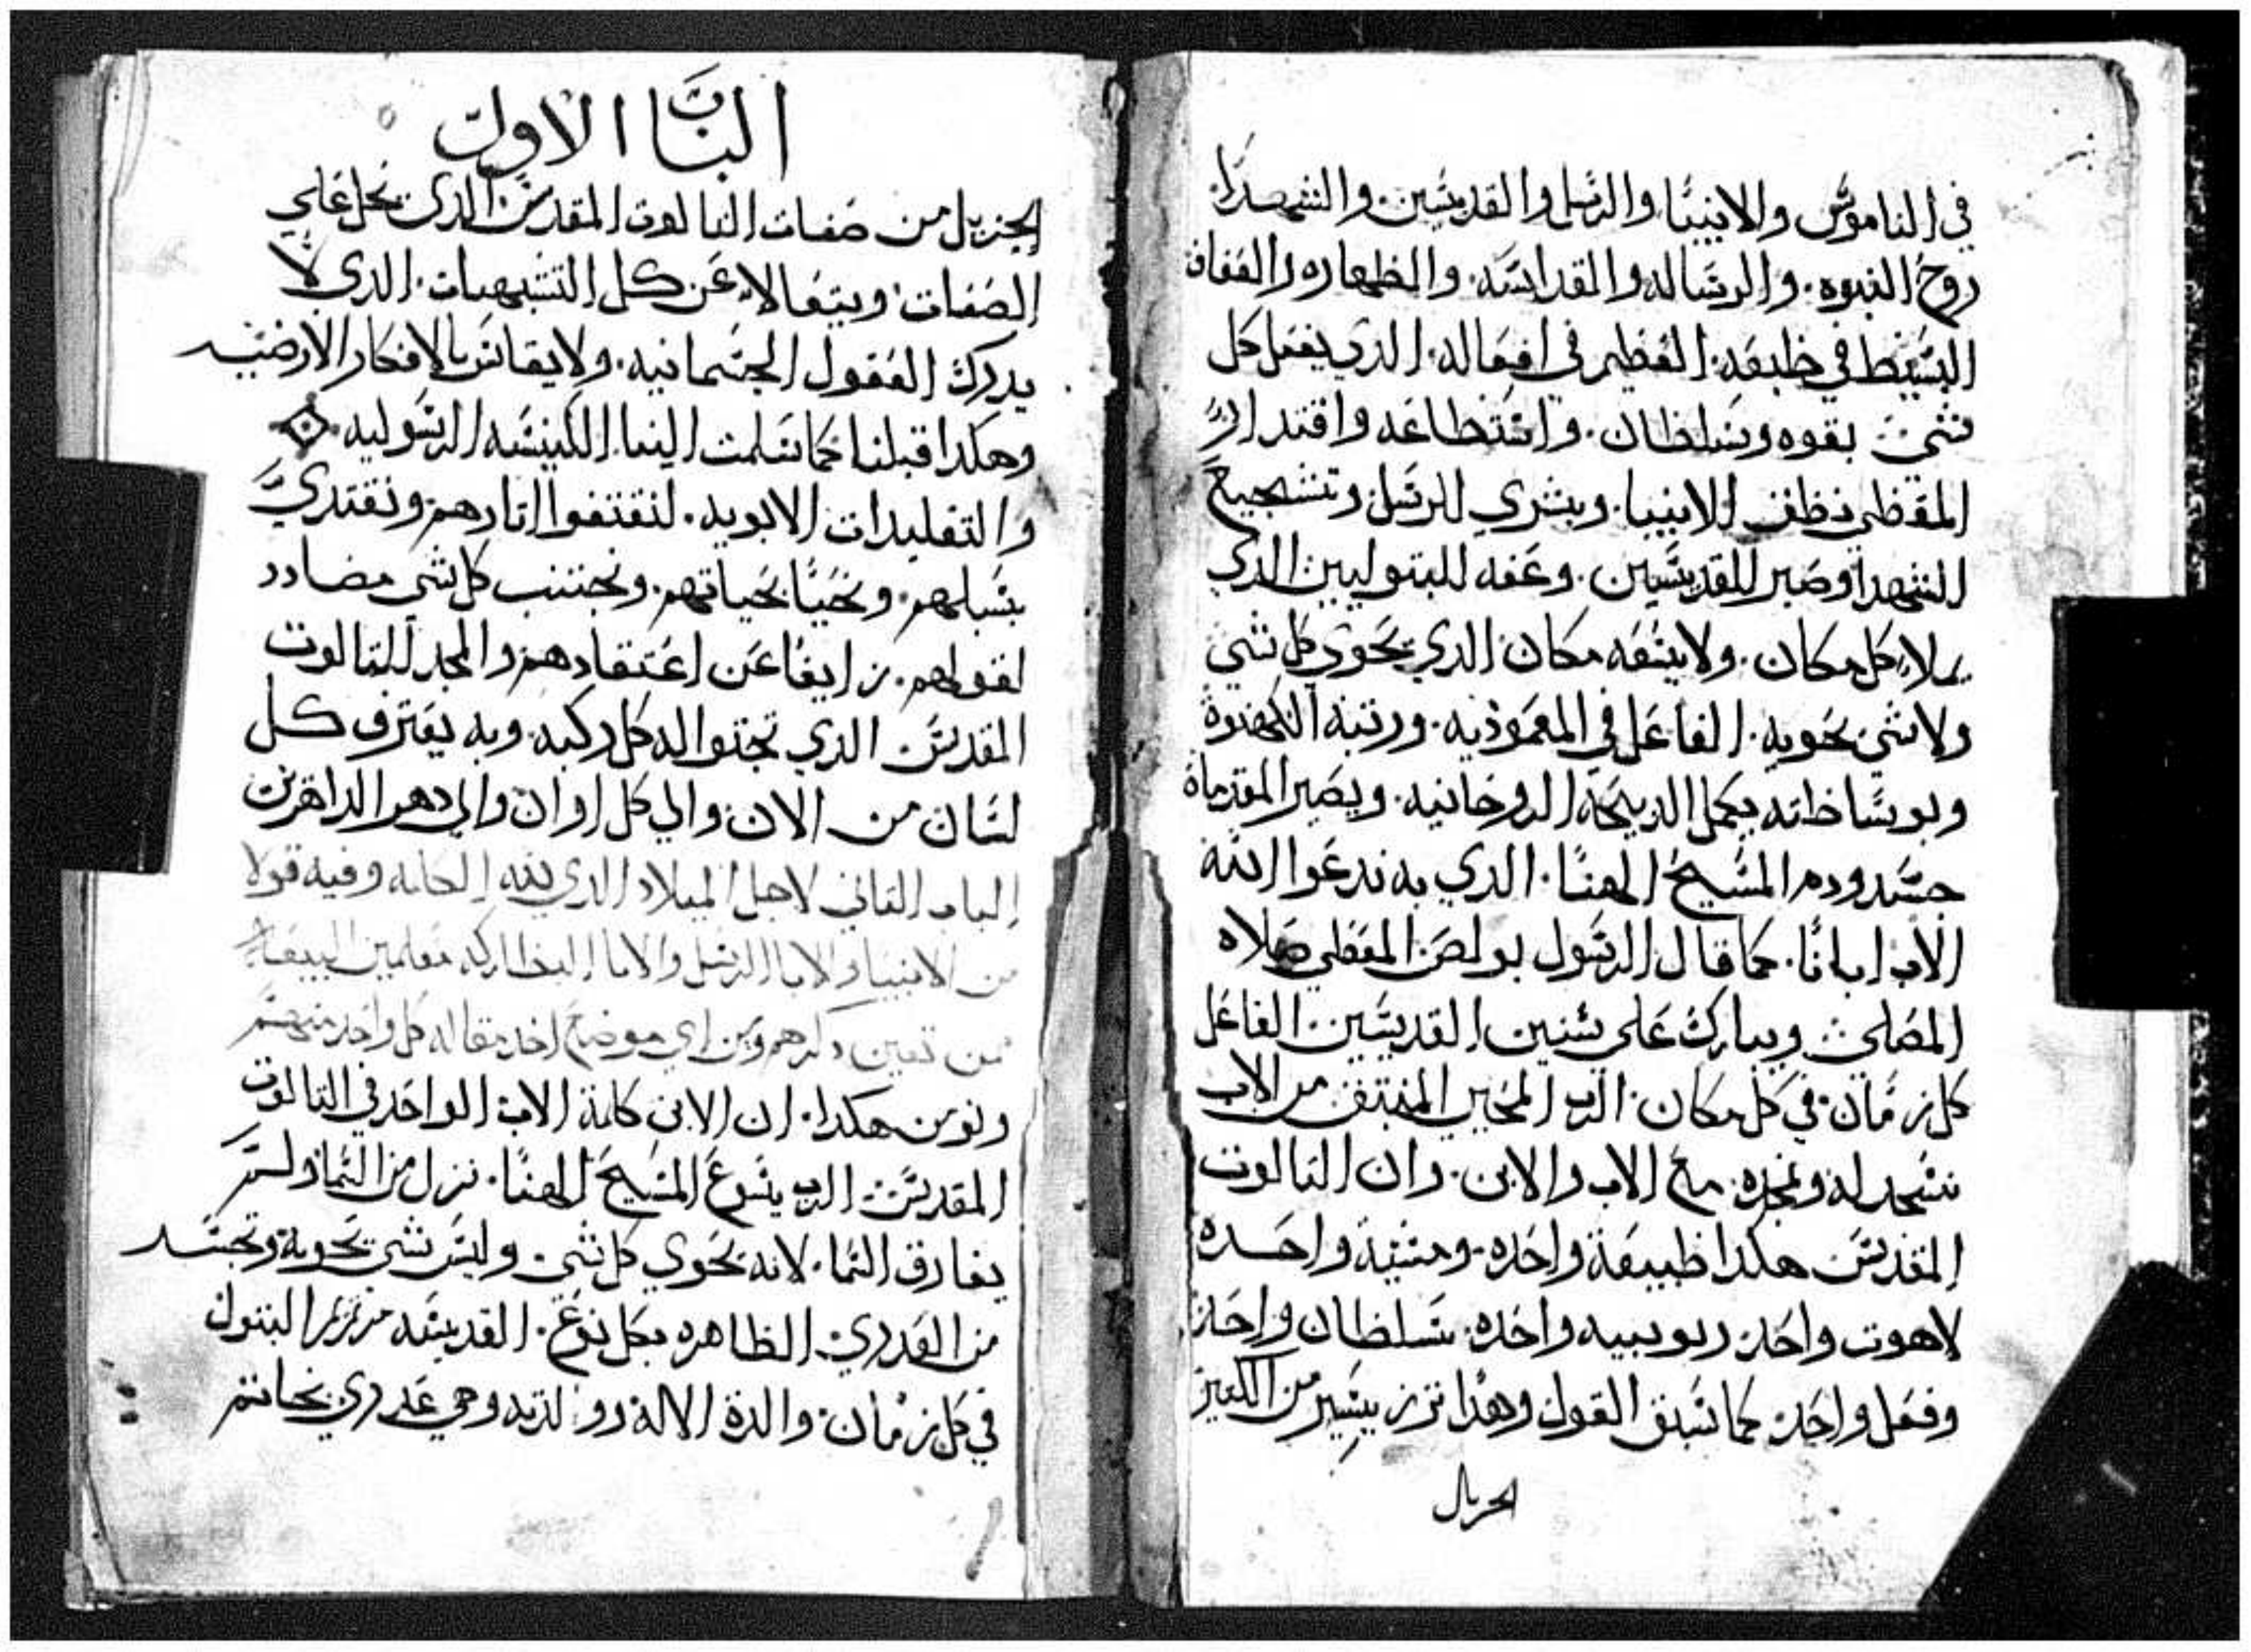 في الناموس والانبيا والرسل والقديسين. والشهدا.
روح النبوه. والرساله والقداسه. والطهاره والعفاف
البسيط في طبعه. العظيم في افعاله. الدي يفعل كل
شي بقوه وسلطان. واستطاعه واقتدار
المعطي نطق الانبيا. وبشري الرسل وتشجيع
الشهدا وصبر للقديسين. وعفه للبتوليين الدي
يملا كل مكان. ولا يسعه مكان الدي يحوي كل شي
ولا شي يحويه. الفاعل في المعموديه. ورتبة الكهنوة
وبوساطته يكمل الدبيحة الروحانيه. ويصير القرباة
جسد ودم المسيح الهنا. الدي به ندعوا الله
الاب ابانا. كما قال الرسول بولص المعطي صلاه
المصلي ويبارك علي سنين القديسين الفاعل
كل زمان في كل مكان. الرب المحيي المنبتق من الاب
نسجد له ونمجده. مع الاب والابن. وان التالوت
المقدس هكدا طبيعة واحده. ومشية واحده
لاهوت واحد. ربوبييه واحده. سلطان واحد
وفعل واحد. كما سبق القول وهدا نزر يسير من الكتير
الجزيل
الباب الاول
الجزيل من صفات التالوت المقدس الدي يجل علي
الصفات. ويتعالا عن كل التشبيهات. الدي لا
يدرك العقول الجسمانيه. ولا يقاس بالافكار الارضيه
وهكدا قبلنا كما سلمت الينا الكنيسه الرسوليه.
والتقليدات الابويه. لنقتفوا اتارهم ونقتدي
بسبلهم. ونحيا بحياتهم. ونجتنب كل شي مضادد
لقولهم. زايغا عن اعتقادهم والمجد للتالوت
المقدس الدي تجتوا له كل ركبه. وبه يعترف كل
لسان من الان والي كل اوان والي دهر الداهرين
الباب التاني لاجل الميلاد الدي لله الكلمه وفيه قولا
من الانبيا والابا الرسل والابا البطاركه معلمين البيعه
من تعين دكرهم ومن اي موضع اخد مقاله كل واحد منهم
ونومن هكدا. ان الابن كلمة الاب الواحد في التالوت
المقدس الرب يسوع المسيح الهنا. نزل من السما ولم
يفارق السما. لانه يحوي كل شي. وليس شي يحويه وتجسد
من العدري الطاهره بكل نوع. القديسه مرتمريم البتول
في كل زمان. والدة الاله ولدته وهي عدري بخاتم